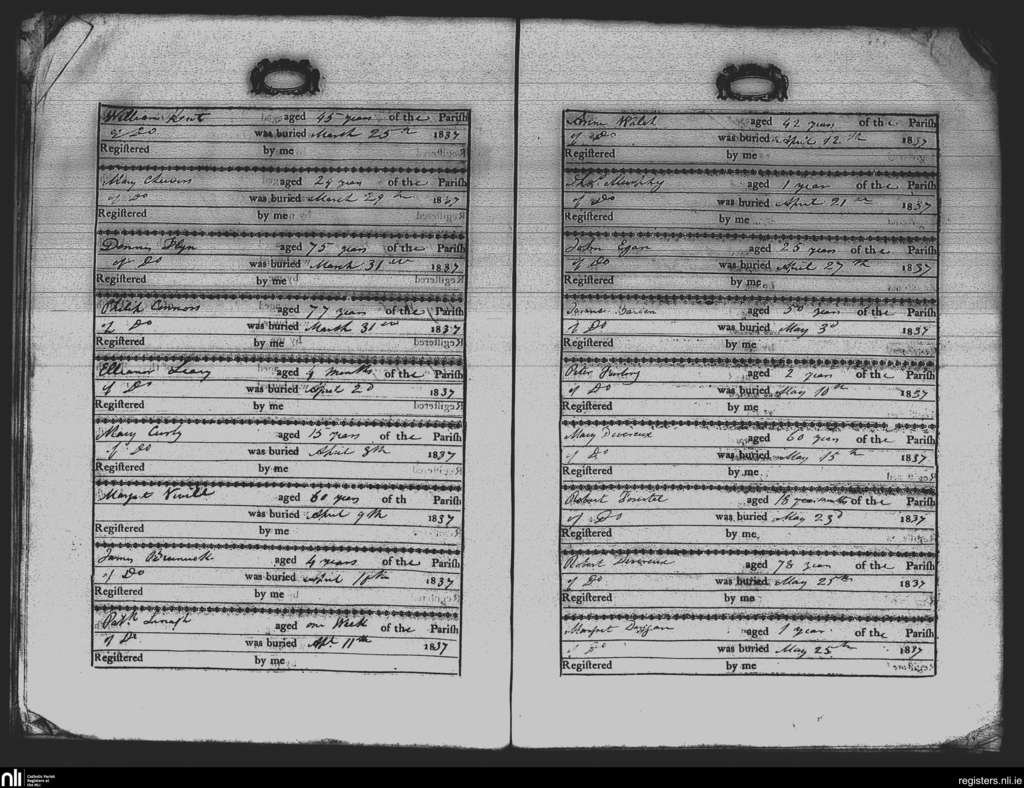 William Kent aged 45 years of the Parish
of Do was buried March 25th 1837
Registered by me
Mary Cheevers aged 29 years of the Parish
of Do was buried March 29th 1837
Registered by me
Dennis Flyn aged 75 years of the Parish
of Do was buried March 31 1837
Registered by me
Philip Connors aged 77 years of the Parish
of Do was buried March 31 1837
Registered by me
Elleanor Leary aged 9 months of the Parish
of Do was buried April 2d 1837
Registered by me
Mary aged 15 years of the Parish
of Do was buried April 8th 1837
Registered by me
Margat aged 60 years of th Parish
was buried April 9th 1837
Registered by me
James aged 4 years of the Parish
of Do was buried April 10th 1837
Registered by me
Patk aged one Week of the Parish
of Do was buried Apl 11th 1837
Registered by me
Anne Walsh aged 42 years of the Parish
of Do was buried April 12th 1837
Registered by me
Thos Murphy aged 1 year of the Parish
of Do was buried April 21 1837
Registered by me
John Egan aged 25 years of the Parish
of Do was buried April 27th 1837
Registered by me
aged 50 years of the Parish
of Do was buried May 3d 1837
Registered by me
Peter aged 2 years of the Parish
of Do was buried May 10th 1837
Registered by me
Mary Devereux aged 60 years of the Parish
of Do was buried May 15th 1837
Registered by me
Robert aged 18 of the Parish
of Do was buried May 23d 1837
Registered by me
Robert Devereux aged 78 years of the Parish
of Do was buried May 25th 1837
Registered by me
Margret Duggan aged 1 year of the Parish
of Do was buried May 25th 1837
Registered by me
nli Catholic Parish
Registers at
the NLI
registers.nli.ie